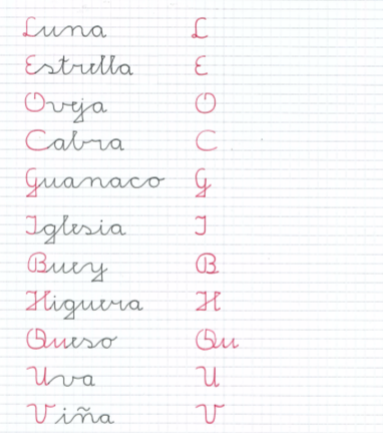 Luna L
Estrella E
Oveja O
Cabra C
Guanaco G
Iglesia I
Buey B
Higuera H
Queso Qu
Uva U
Viña V